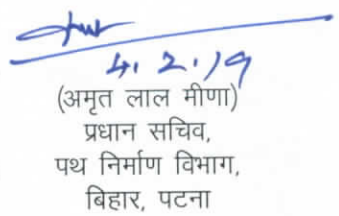 4.2.19
(अमृत लाल मीणा)
प्रधान सचिव,
पथ निर्माण विभाग,
बिहार, पटना